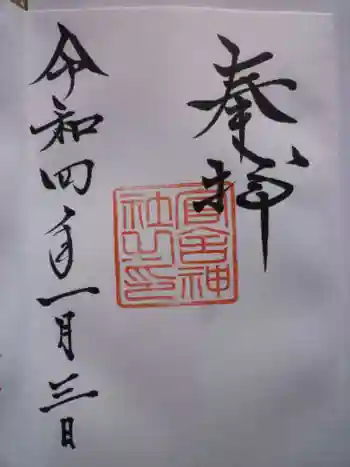 奉拝
舎神
社之印
令和四年一月三日